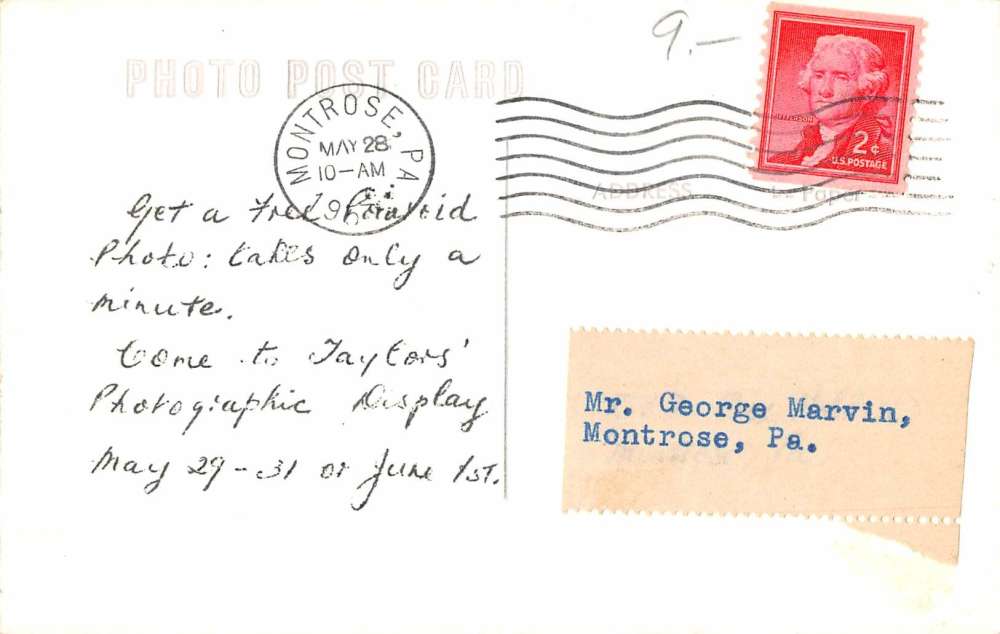 9.—
PHOTO POST CARD
MONTROSE, PA
MAY 28
10-AM
JEFFERSON
2¢
U.S. POSTAGE
ADDRESS
Paper
Get a Free Polaroid
Photo: takes only a
minute.
Come to Taylors'
Photographic Display
May 29-31 or June 1st.
Mr. George Marvin,
Montrose, Pa.